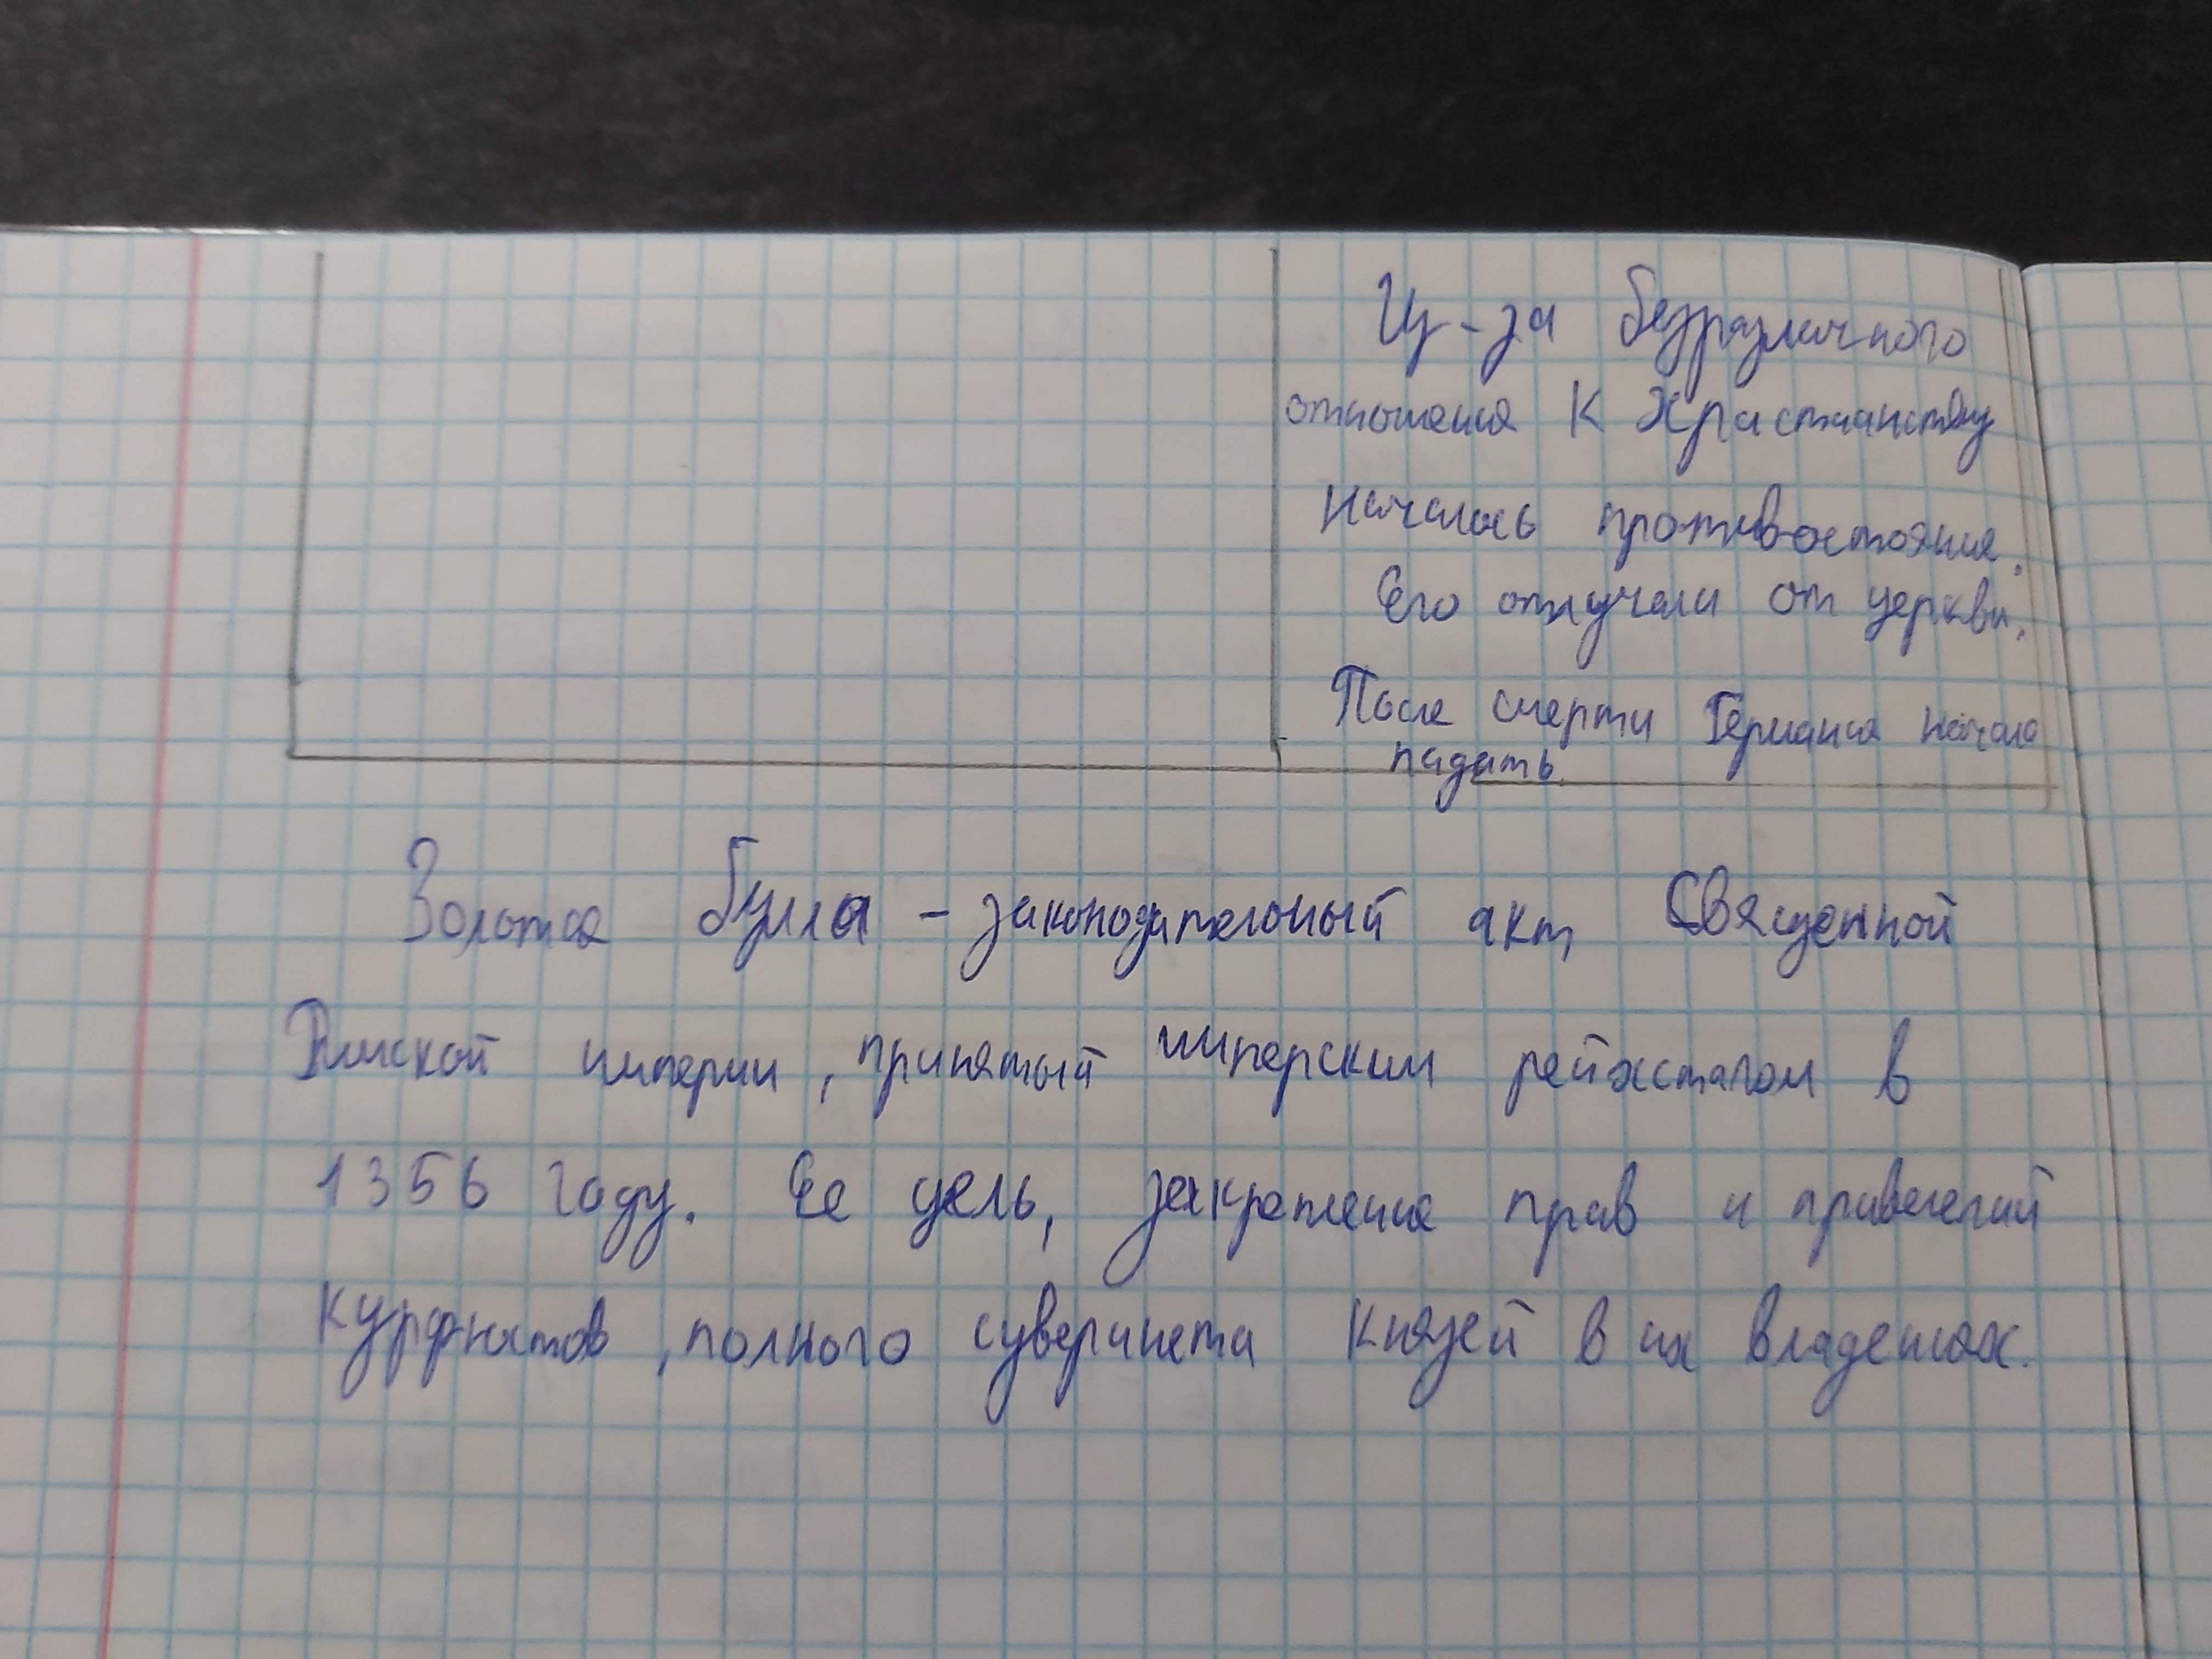 Из-за безразличного
отношения к Христианству
началось противостояние.
Его отлучали от церкви.
После смерти Германия начала
падать.
Золотая булла - законодательный акт, Священной
Римской империи, принятый имперским рейхстагом в
1356 году. Ее цель, закрепление прав и привелегий
курфюстов, полного суверинета князей в их владениях.